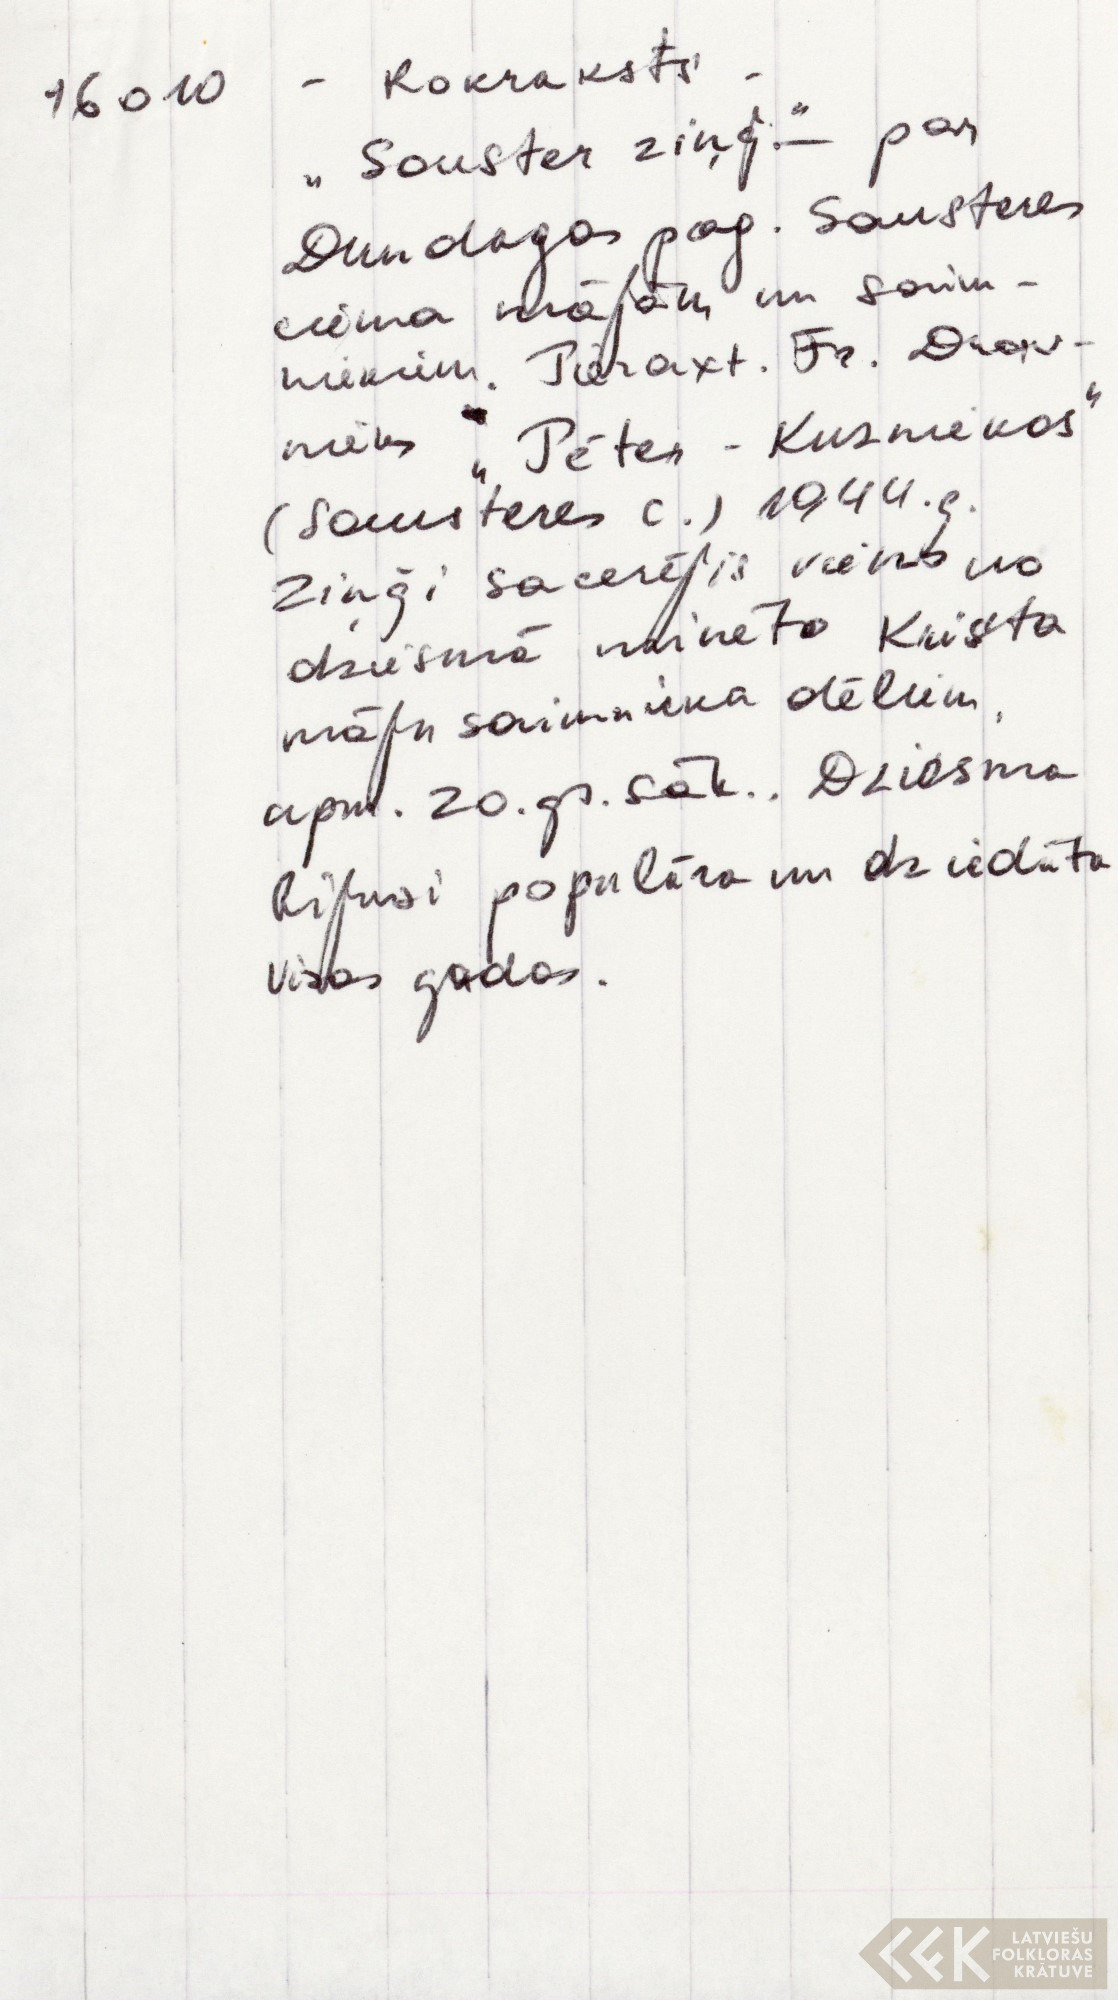 16010 - Rokraksts -
"Sauster ziņģ." — par
Dundagas pag. Sausteres
ciema mājām un saim-
niekiem. Pierakst. Fr.
nieks "Pēter - Kuzniekos"
(Sausteres c.) 1944. g.
Ziņģi sacerējis viens no
dziesmā minēto Krista
māju saimnieka dēliem,
apm. 20. gs. sāk.. Dziesma
bijusi populāra un dziedāta
visos gados.
LATVIEŠU
FOLKLORAS
KRĀTUVE